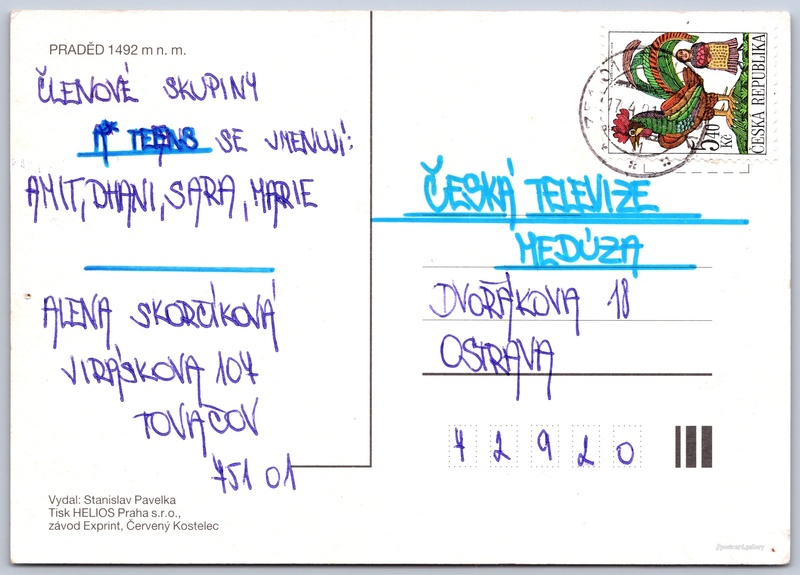 PRADĚD 1492 m n. m.
ČLENOVÉ SKUPINY
A* TEENS SE JMENUJÍ:
AMIT, DHANI, SARA, MARIE
ALENA SKORČÍKOVÁ
JIRÁSKOVA 104
TOVAČOV
751 01
Vydal: Stanislav Pavelka
Tisk HELIOS Praha s.r.o.,
závod Exprint, Červený Kostelec
5,40
Kč
ČESKÁ REPUBLIKA
ČESKÁ TELEVIZE
MEDÚZA
DVOŘÁKOVA 18
OSTRAVA
7 2 9 2 0